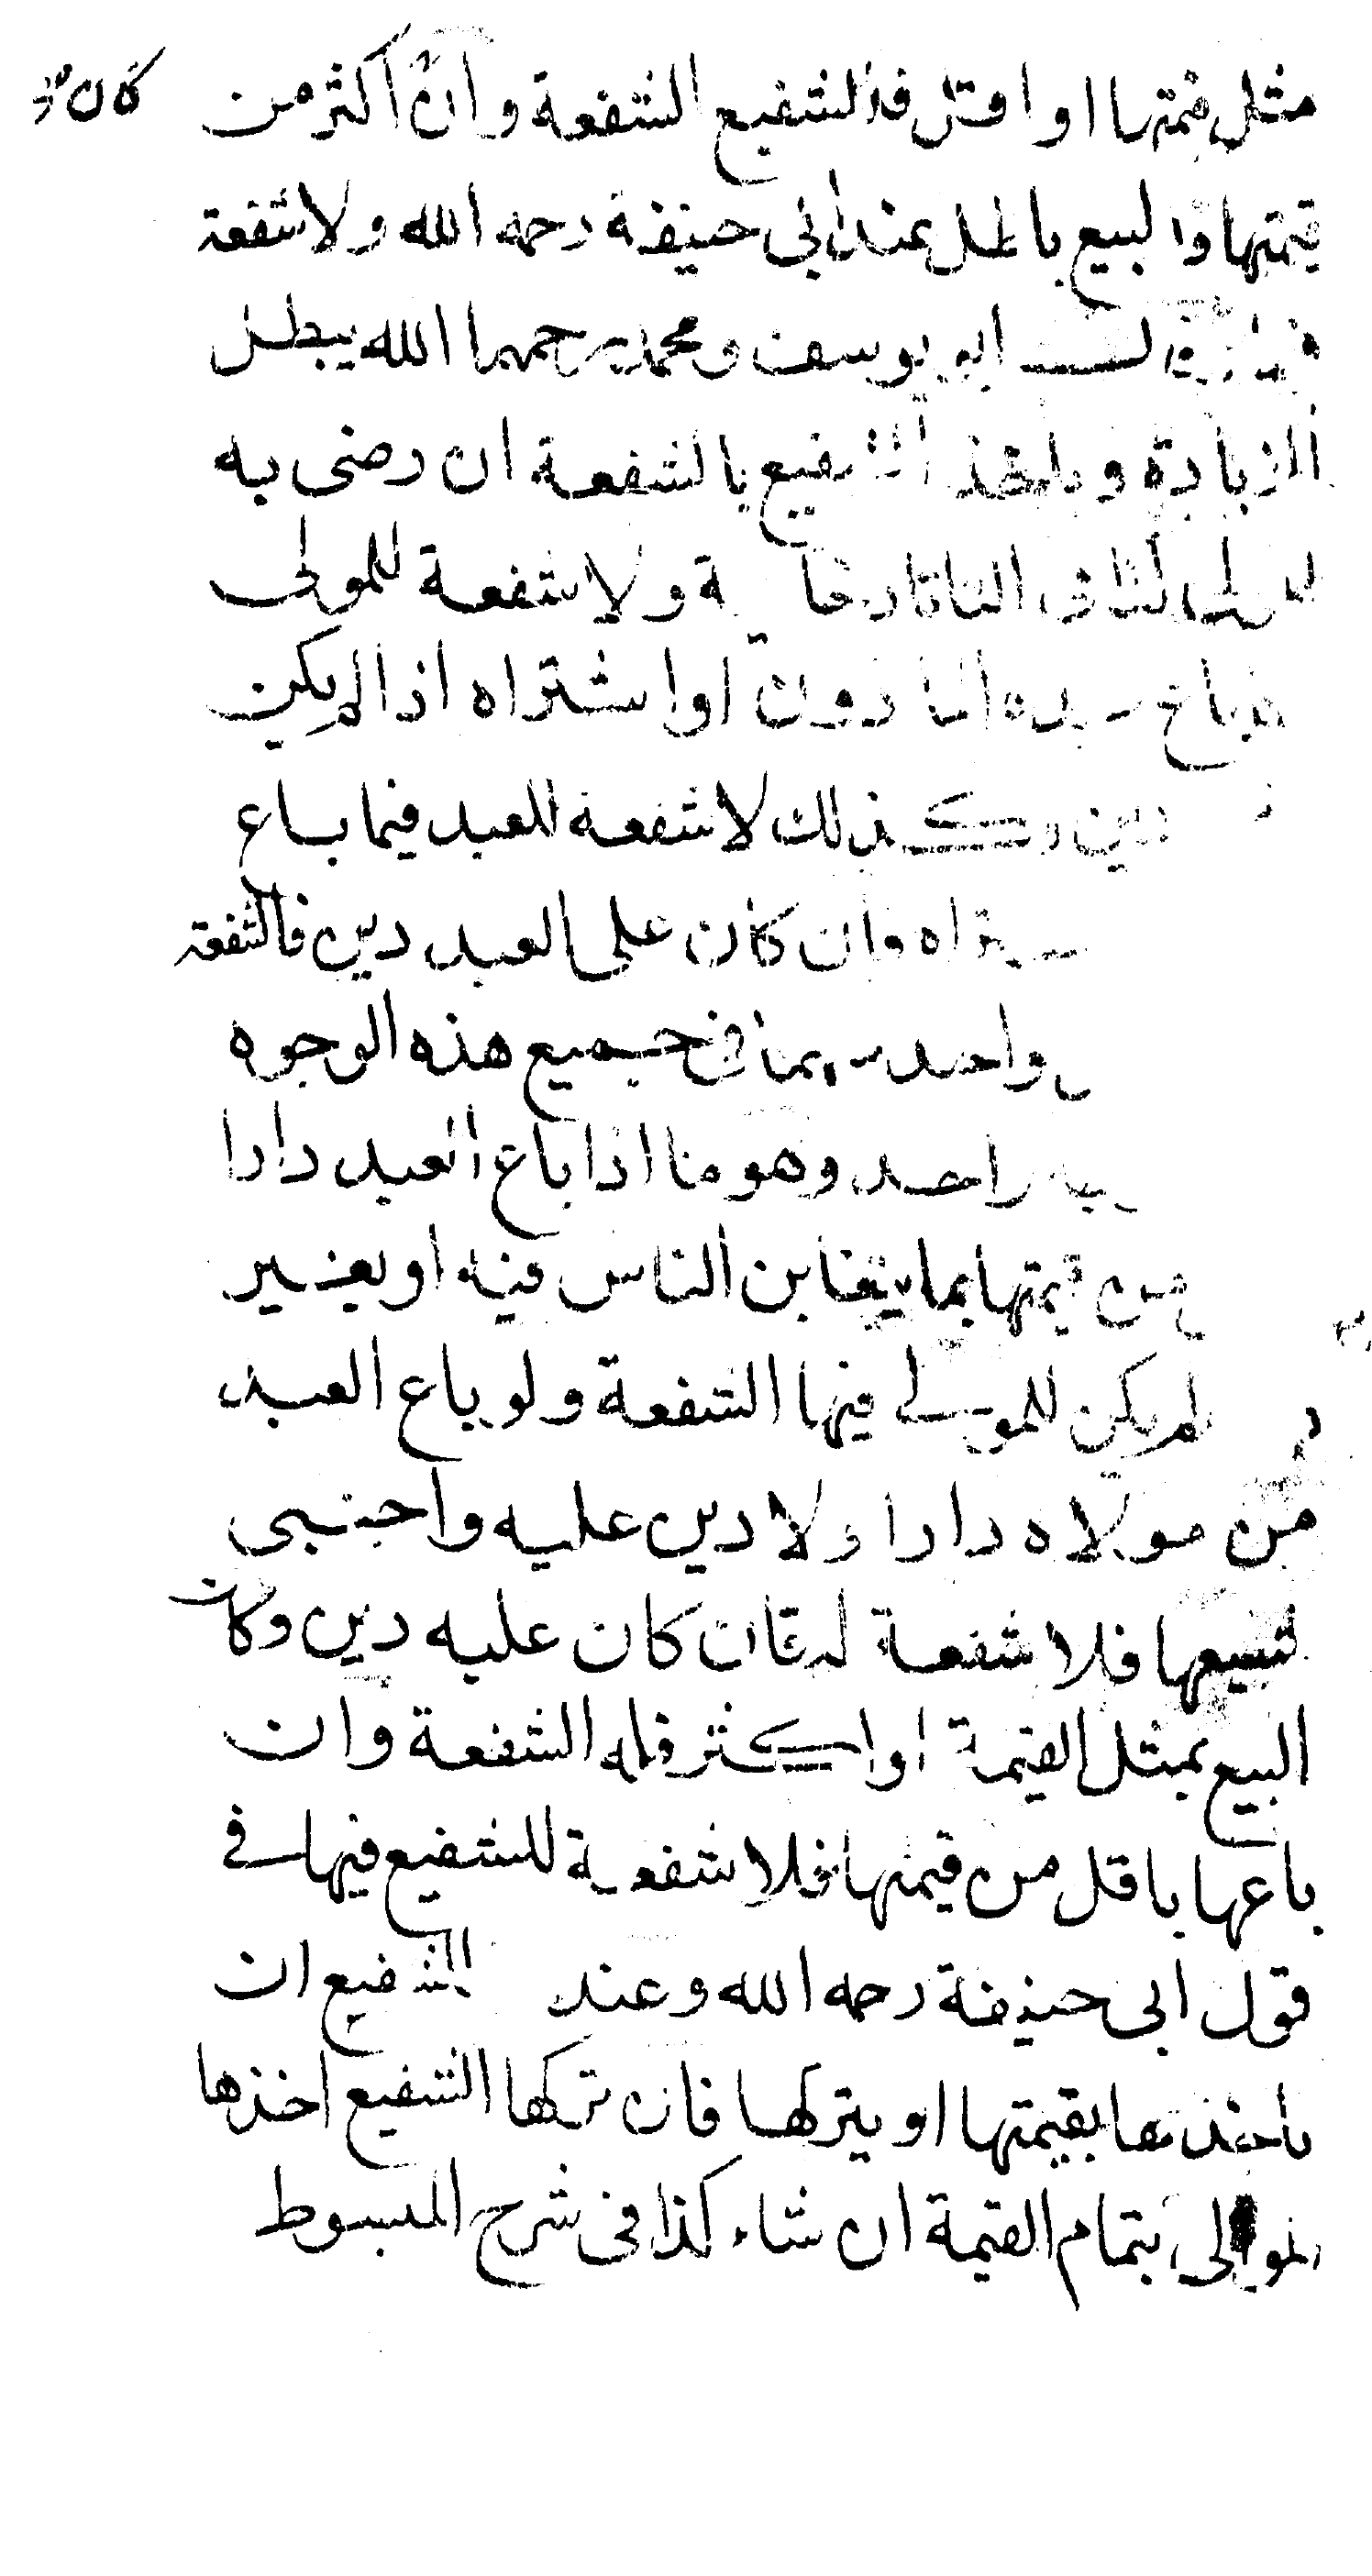 مثل قيمتها او اقل فللشفيع الشفعة وان اكثر من كان
قيمتها فالبيع باطل عند ابى حنيفة رحمه الله ولا شفعة
ابو يوسف ومحمد رحمهما الله يبطل
الزيادة وياخذ الشفيع بالشفعة ان رضى به
فى التاتارخانية ولا شفعة للمولى
فيما باع عبده الماذون او اشتراه اذا لم يكن
دين وكذلك لا شفعة للعبد فيما باع
وان كان على العبد دين فالشفعة
واحد منهما فى جميع هذه الوجوه
واحد وهو ما اذا باع العبد دارا
من قيمتها بما يتغابن الناس فيه او بغير
لم يكن للمولى فيها الشفعة ولو باع العبد
من مولاه دارا ولا دين عليه واجنبى
شفيعها فلا شفعة له فان كان عليه دين وكان
البيع بمثل القيمة او اكثر فله الشفعة وان
باعها باقل من قيمتها فلا شفعة للشفيع فيها فى
قول ابى حنيفة رحمه الله وعند الشفيع ان
ياخذها بقيمتها او يتركها فان تركها الشفيع اخذها
المولى بتمام القيمة ان شاء كذا فى شرح المبسوط